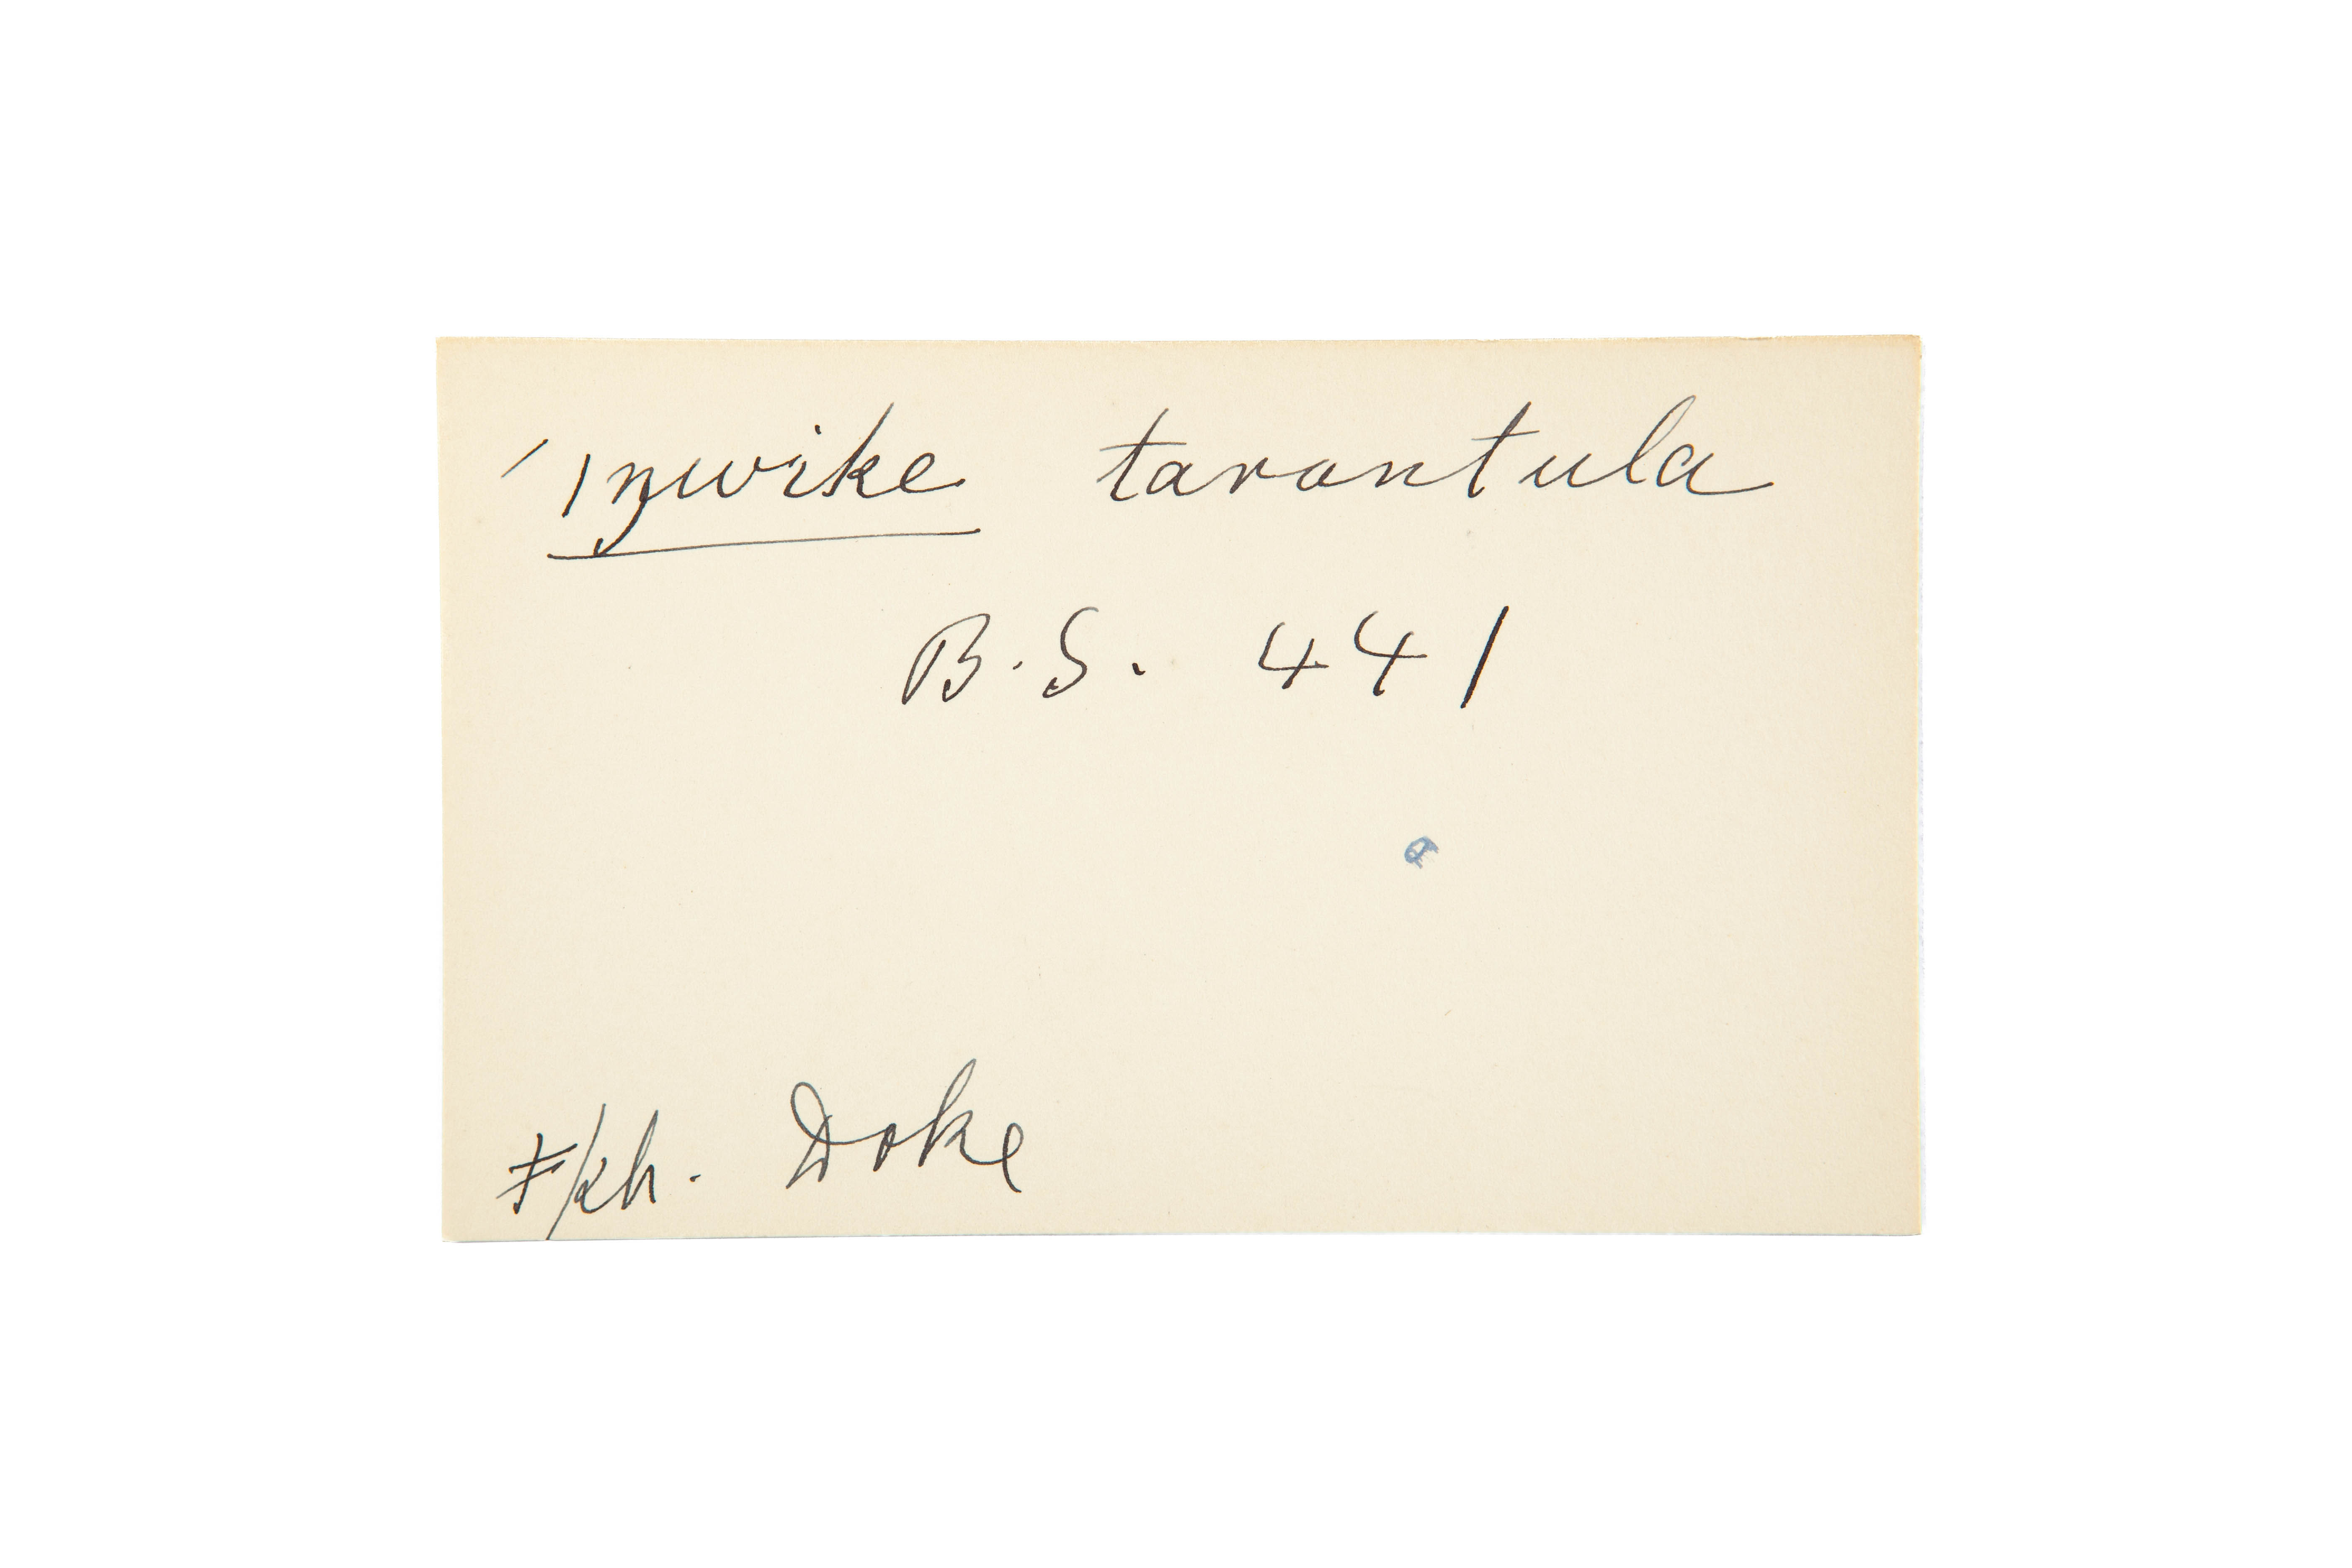 ˊ|ŋwike tarantula
B.S. 441
ǂ/kh. Doke